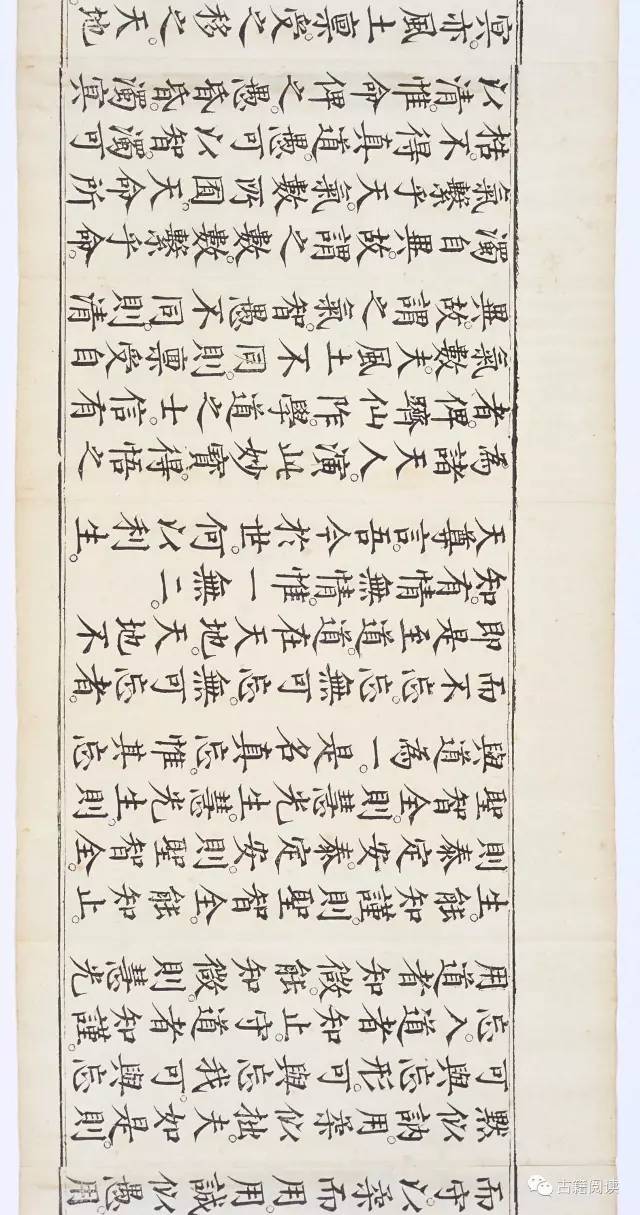 而守。以柔而用。用誠似愚。用
默似訥。用柔似拙。夫如是。則
可與忘形。可與忘我。可與忘
忘。入道者知止。守道者知謹。
用道者知微。能知微。則慧光
生。能知謹。則聖智全。能知止。
則泰定安。泰定安。則聖智全。
聖智全。則慧光生。慧光生。則
與道為一。是名真忘。惟其忘
而不忘。忘無可忘。無可忘者。
即是至道。道在天地。天地不
知。有情無情。惟一無二。
天尊言。吾今於世。何以利生。
為諸天人。演此妙寶。得悟之
者。俾躋仙阼。學道之士。信有
氣數。夫風土不同。則稟受自
異。故謂之氣。智愚不同。則清
濁自異。故謂之數。數繫乎命。
氣繫乎天。氣數所囿。天命所
梏。不得真道。愚可以智。濁可
以清。惟命俾之。愚昏昏。濁冥
冥。亦風土稟受之移之。天地
古籍阅读